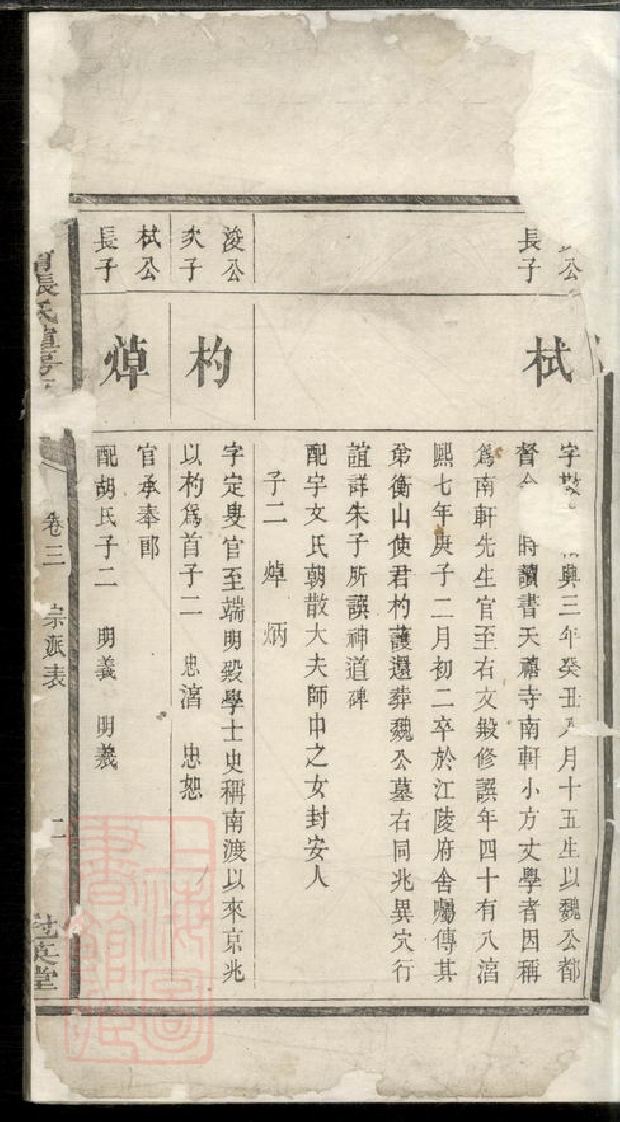 公
長子
栻
字敬
興三年癸丑八月十五生以魏公都
督
時讀書天禧寺南軒小方丈學者因稱
爲南軒先生官至右文殿修譔年四十有八淳
熙七年庚子二月初二卒於江陵府舍囑傳其
弟衡山使君杓護還葬魏公墓右同兆異穴行
誼詳朱子所譔神道碑
配宇文氏朝散大夫師中之女封安人
子二 焯 炳
浚公
次子
杓
字定叟官至端明殿學士史稱南渡以來京兆
以杓爲首子二 忠淳 忠恕
栻公
長子
焯
官承奉郎
配胡氏子二 明義 明義
張氏
卷三
宗派表
二
英堂
上海圖書館藏